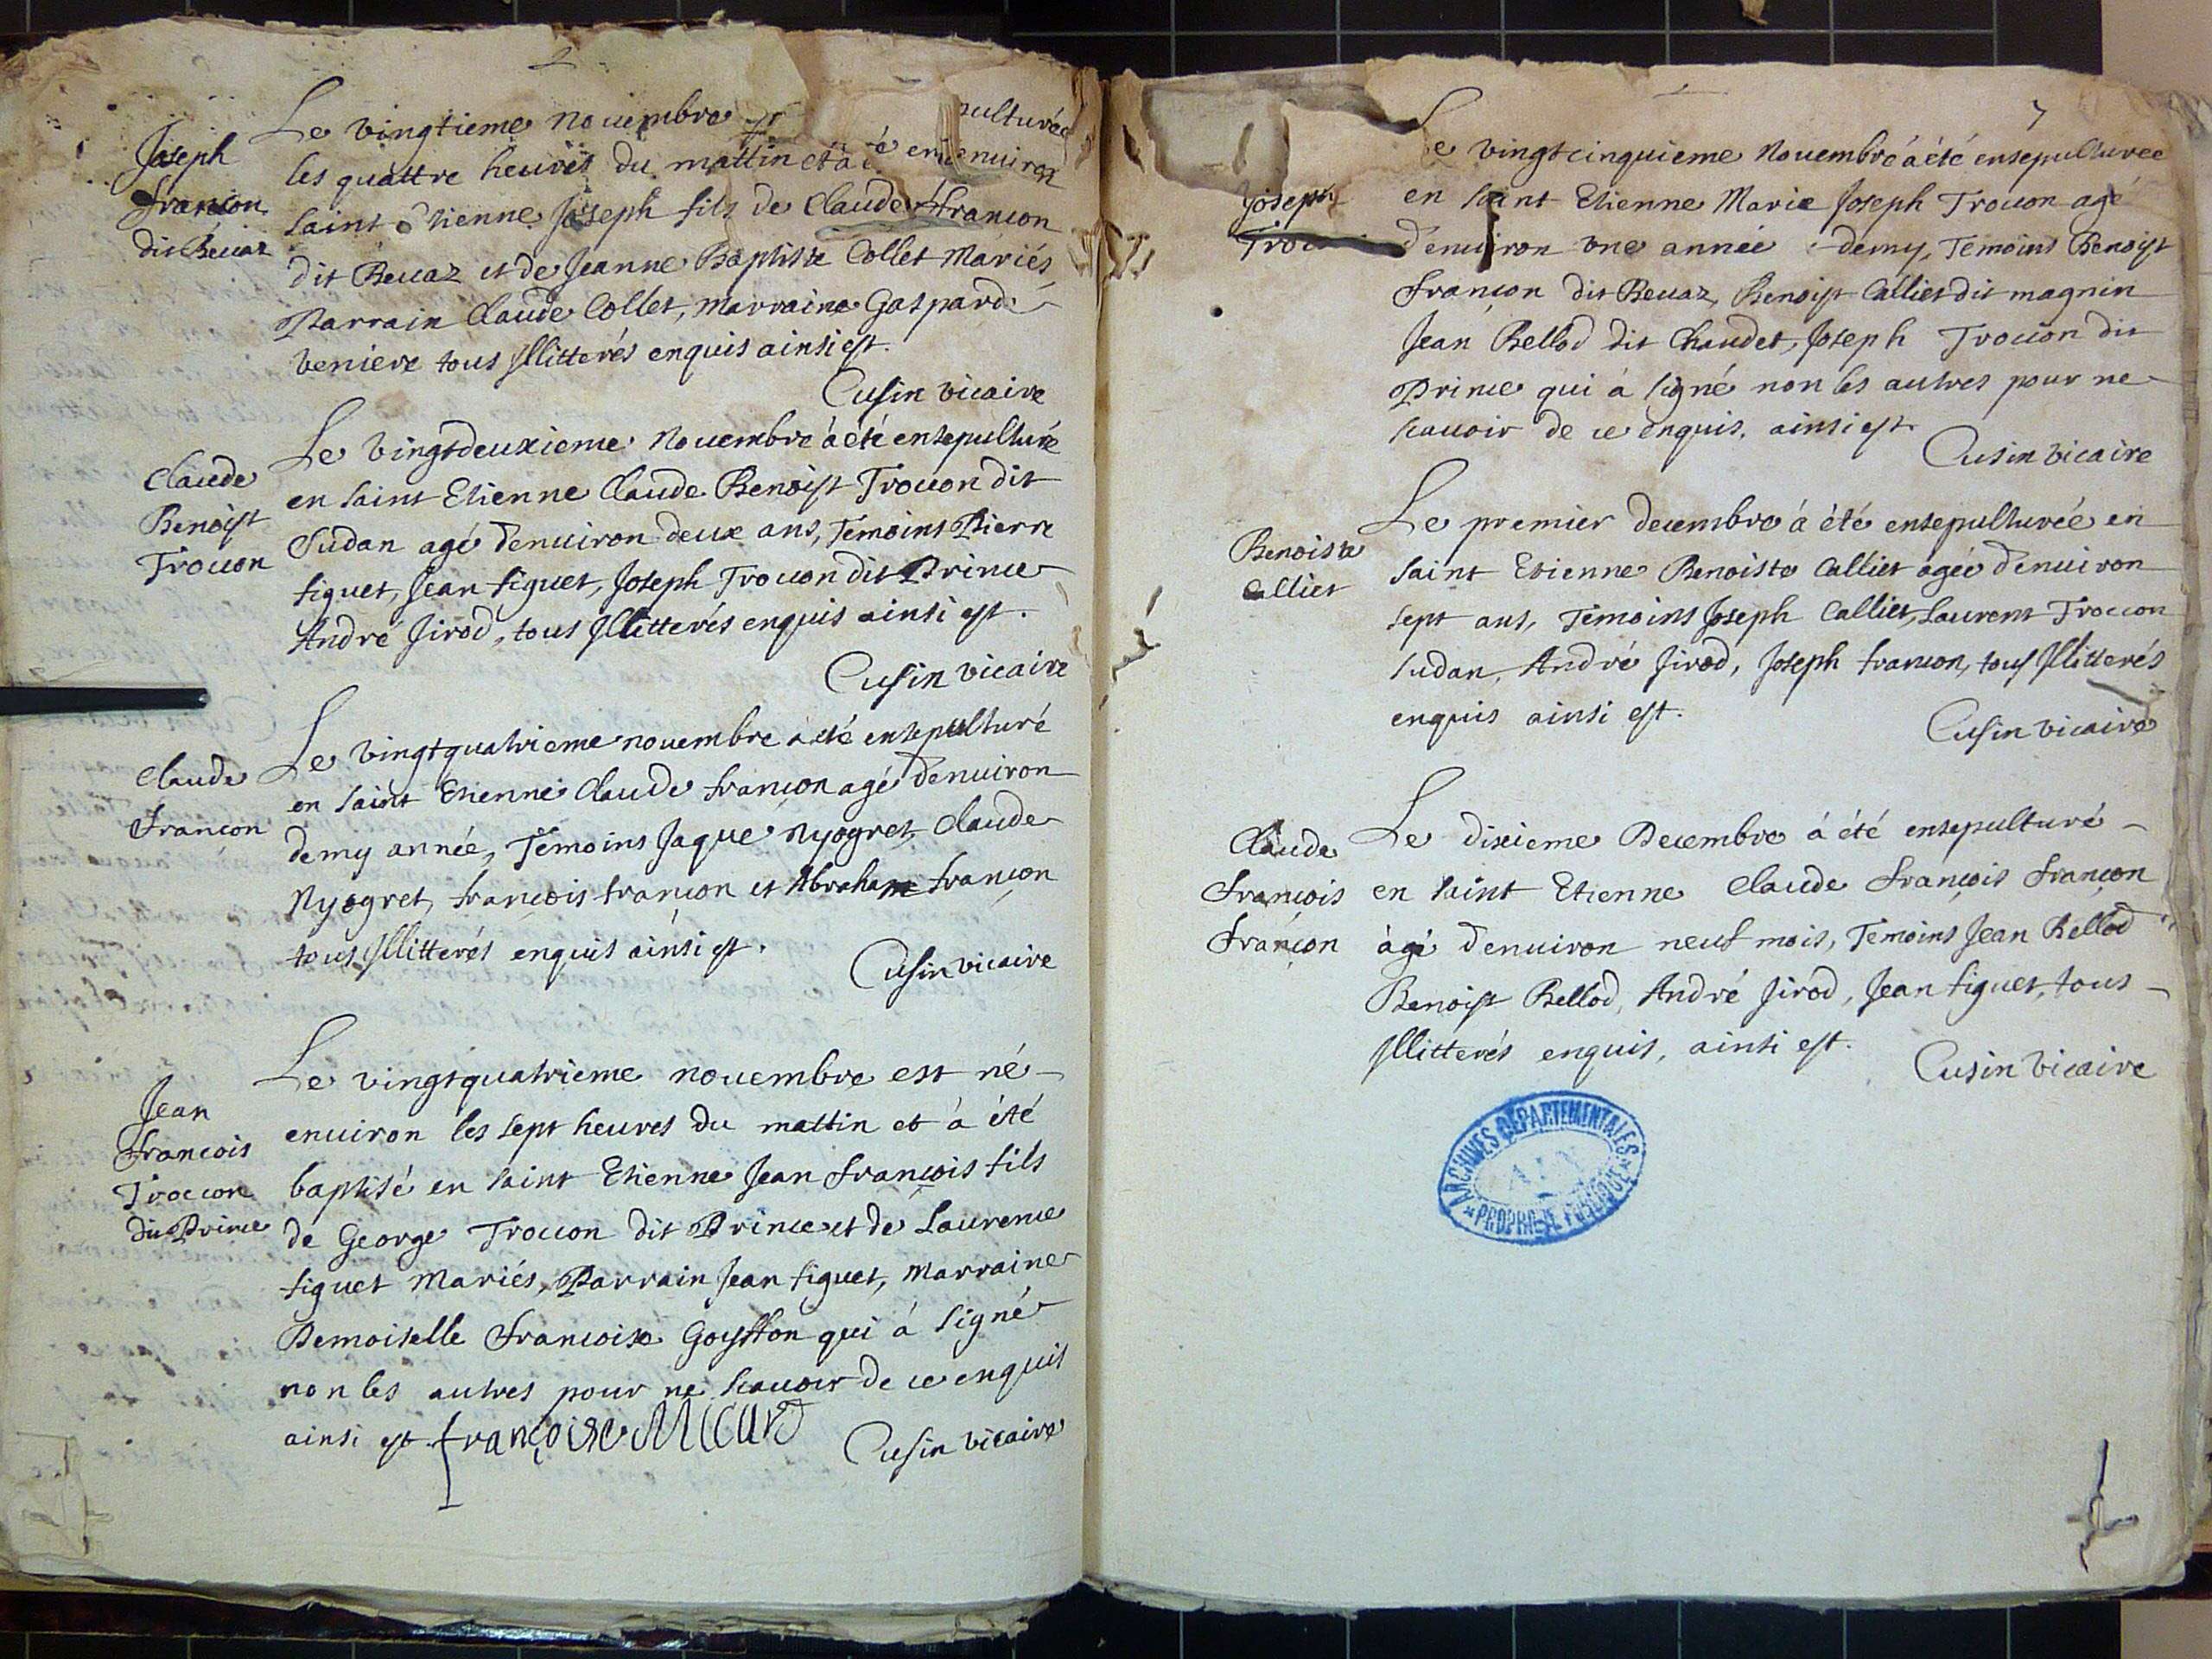 Joseph
françon
dit Beuaz
Le vingtieme nouembre
pulturée
les quattre heures du mattin et a é en enuiron
saint Etienne Joseph fils de Claude françon
dit Beuaz et de Jeanne Baptiste Collet Mariés
Parrain Claude Collet, marraine Gasparde
veniere tous Illitterés enquis ainsi est.
Cusin vicaire
Claude
Benoist
Trocon
Le vingtdeuxieme Nouembre à été ensepulturé
en saint Etienne Claude Benoist Trocon dit
Sudan agé d'enuiron deux ans, Témoins Pierre
figuet, Jean figuet, Joseph Trocon dit Prince
André Jirod, tous Illitterés enquis ainsi est.
Cusin vicaire
Claude
françon
Le vingtquatrieme nouembre à été ensepulturé
en saint Etienne Claude françon agé d'enuiron
demy année, Témoins Jaque Nyogret, Claude
Nyogret, françois françon et Abraham françon
tous Illitterés enquis ainsi est.
Cusin vicaire
Jean
francois
Troccon
dit Prince
Le vingtquatrieme nouembre est né
enuiron les sept heures du mattin et à été
baptisé en saint Etienne Jean françois fils
de George Troccon dit Prince et de Laurence
figuet Mariés, Parrain Jean figuet, Marraine
Demoiselle francoise Goyffon qui à signé
non les autres pour ne scauoir de ce enquis
ainsi est. françoise Micurd
Cusin vicaire
7
Joseph
Troc
Le vingtcinquieme Nouembre à été ensepulturée
en saint Etienne Marie Joseph Trocon agé
d'enuiron vne année demy, Témoins Benoist
françon dit Beuaz, Benoist Calliet dit magnin
Jean Bellod dit Chaudet, Joseph Trocon dit
Prince qui à signé non les autres pour ne
scauoir de ce enquis, ainsi est.
Cusin vicaire
Benoiste
Calliet
Le premier decembre à été ensepulturée en
saint Etienne Benoiste Calliet agée d'enuiron
sept ans, Témoins Joseph Calliet, Laurent Troccon
sudan, André Jirod, Joseph françon, tous Illitterés
enquis ainsi est.
Cusin vicaire
Claude
françois
françon
Le dixieme Decembre à été ensepulturé
en saint Etienne Claude françois françon
àgé d'enuiron neuf mois, Témoins Jean Bellod
Benoist Bellod, André Jirod, Jean figuet, tous
Illitterés enquis, ainsi est.
Cusin vicaire
ARCHIVES DEPARTEMENTALES
AIN
PROPRIETE PUBLIQUE